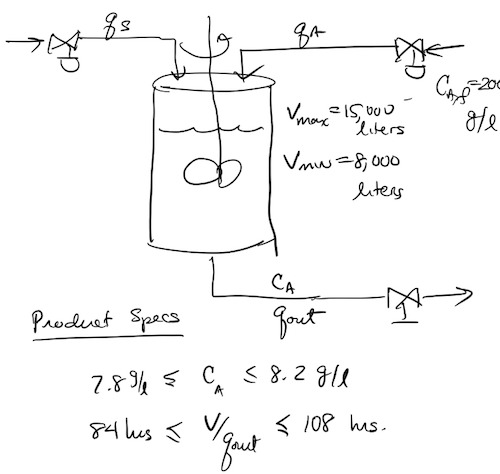 qs
A
qA
C_A,f = 200
g/l
Vmax = 15,000
liters
Vmin = 8,000
liters
C_A
qout
Product Specs
7.8 g/l ≤ C_A ≤ 8.2 g/l
84 hrs ≤ V/qout ≤ 108 hrs.